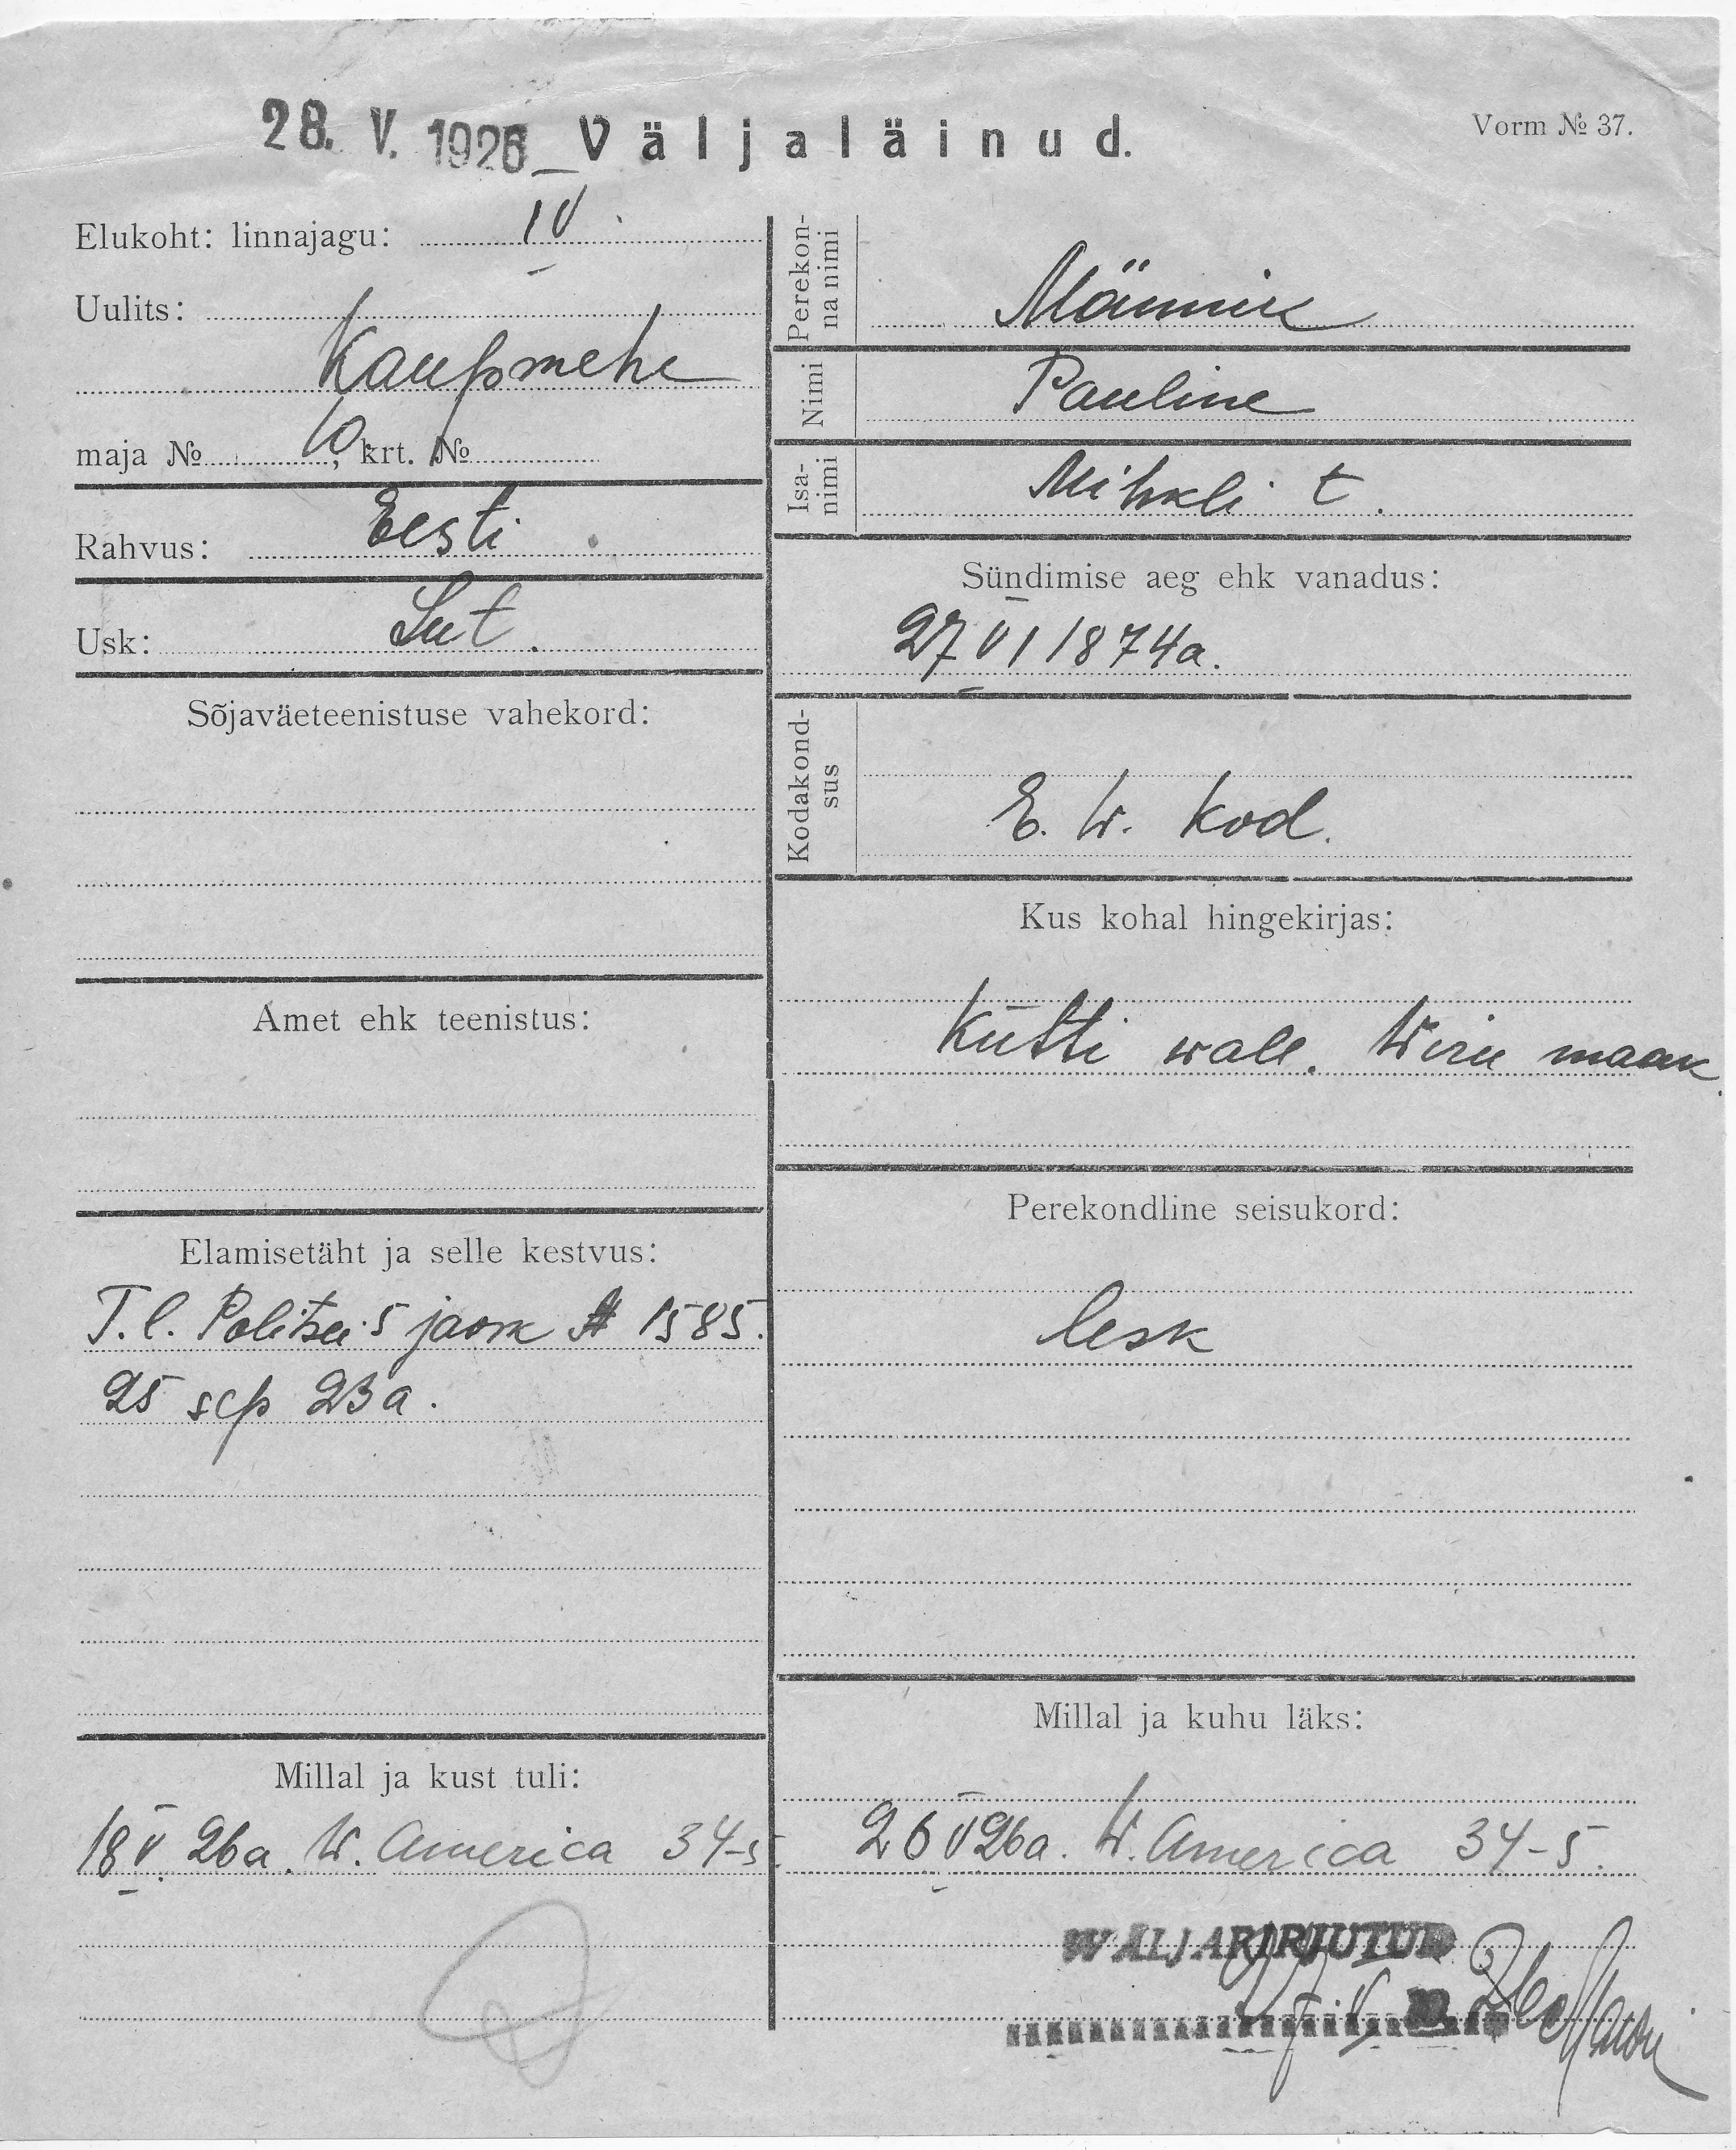 28. V. 1926 Väljaläinud.
Vorm № 37.
Elukoht: linnajagu: IV.
Uulits:
Kaupmehe
maja № 10, krt. №
Rahvus: Eesti
Usk: Lut.
Sõjaväeteenistuse vahekord:
Amet ehk teenistus:
Elamisetäht ja selle kestvus:
T.l. Politsei 5 jaosk № 1585.
25 sep 23a.
Millal ja kust tuli:
18 V 26a. W. America 34-5
Perekon-
na nimi
Männik
Nimi
Pauline
Isa-
nimi
Mihkli t.
Sündimise aeg ehk vanadus:
27 VI 1874a.
Kodakond-
sus
E. W. kod.
Kus kohal hingekirjas:
Kütti wall. Wiru maak.
Perekondline seisukord:
lesk
Millal ja kuhu läks:
26 V 26a. W. America 34-5.
WÄLJAKIRJUTUD